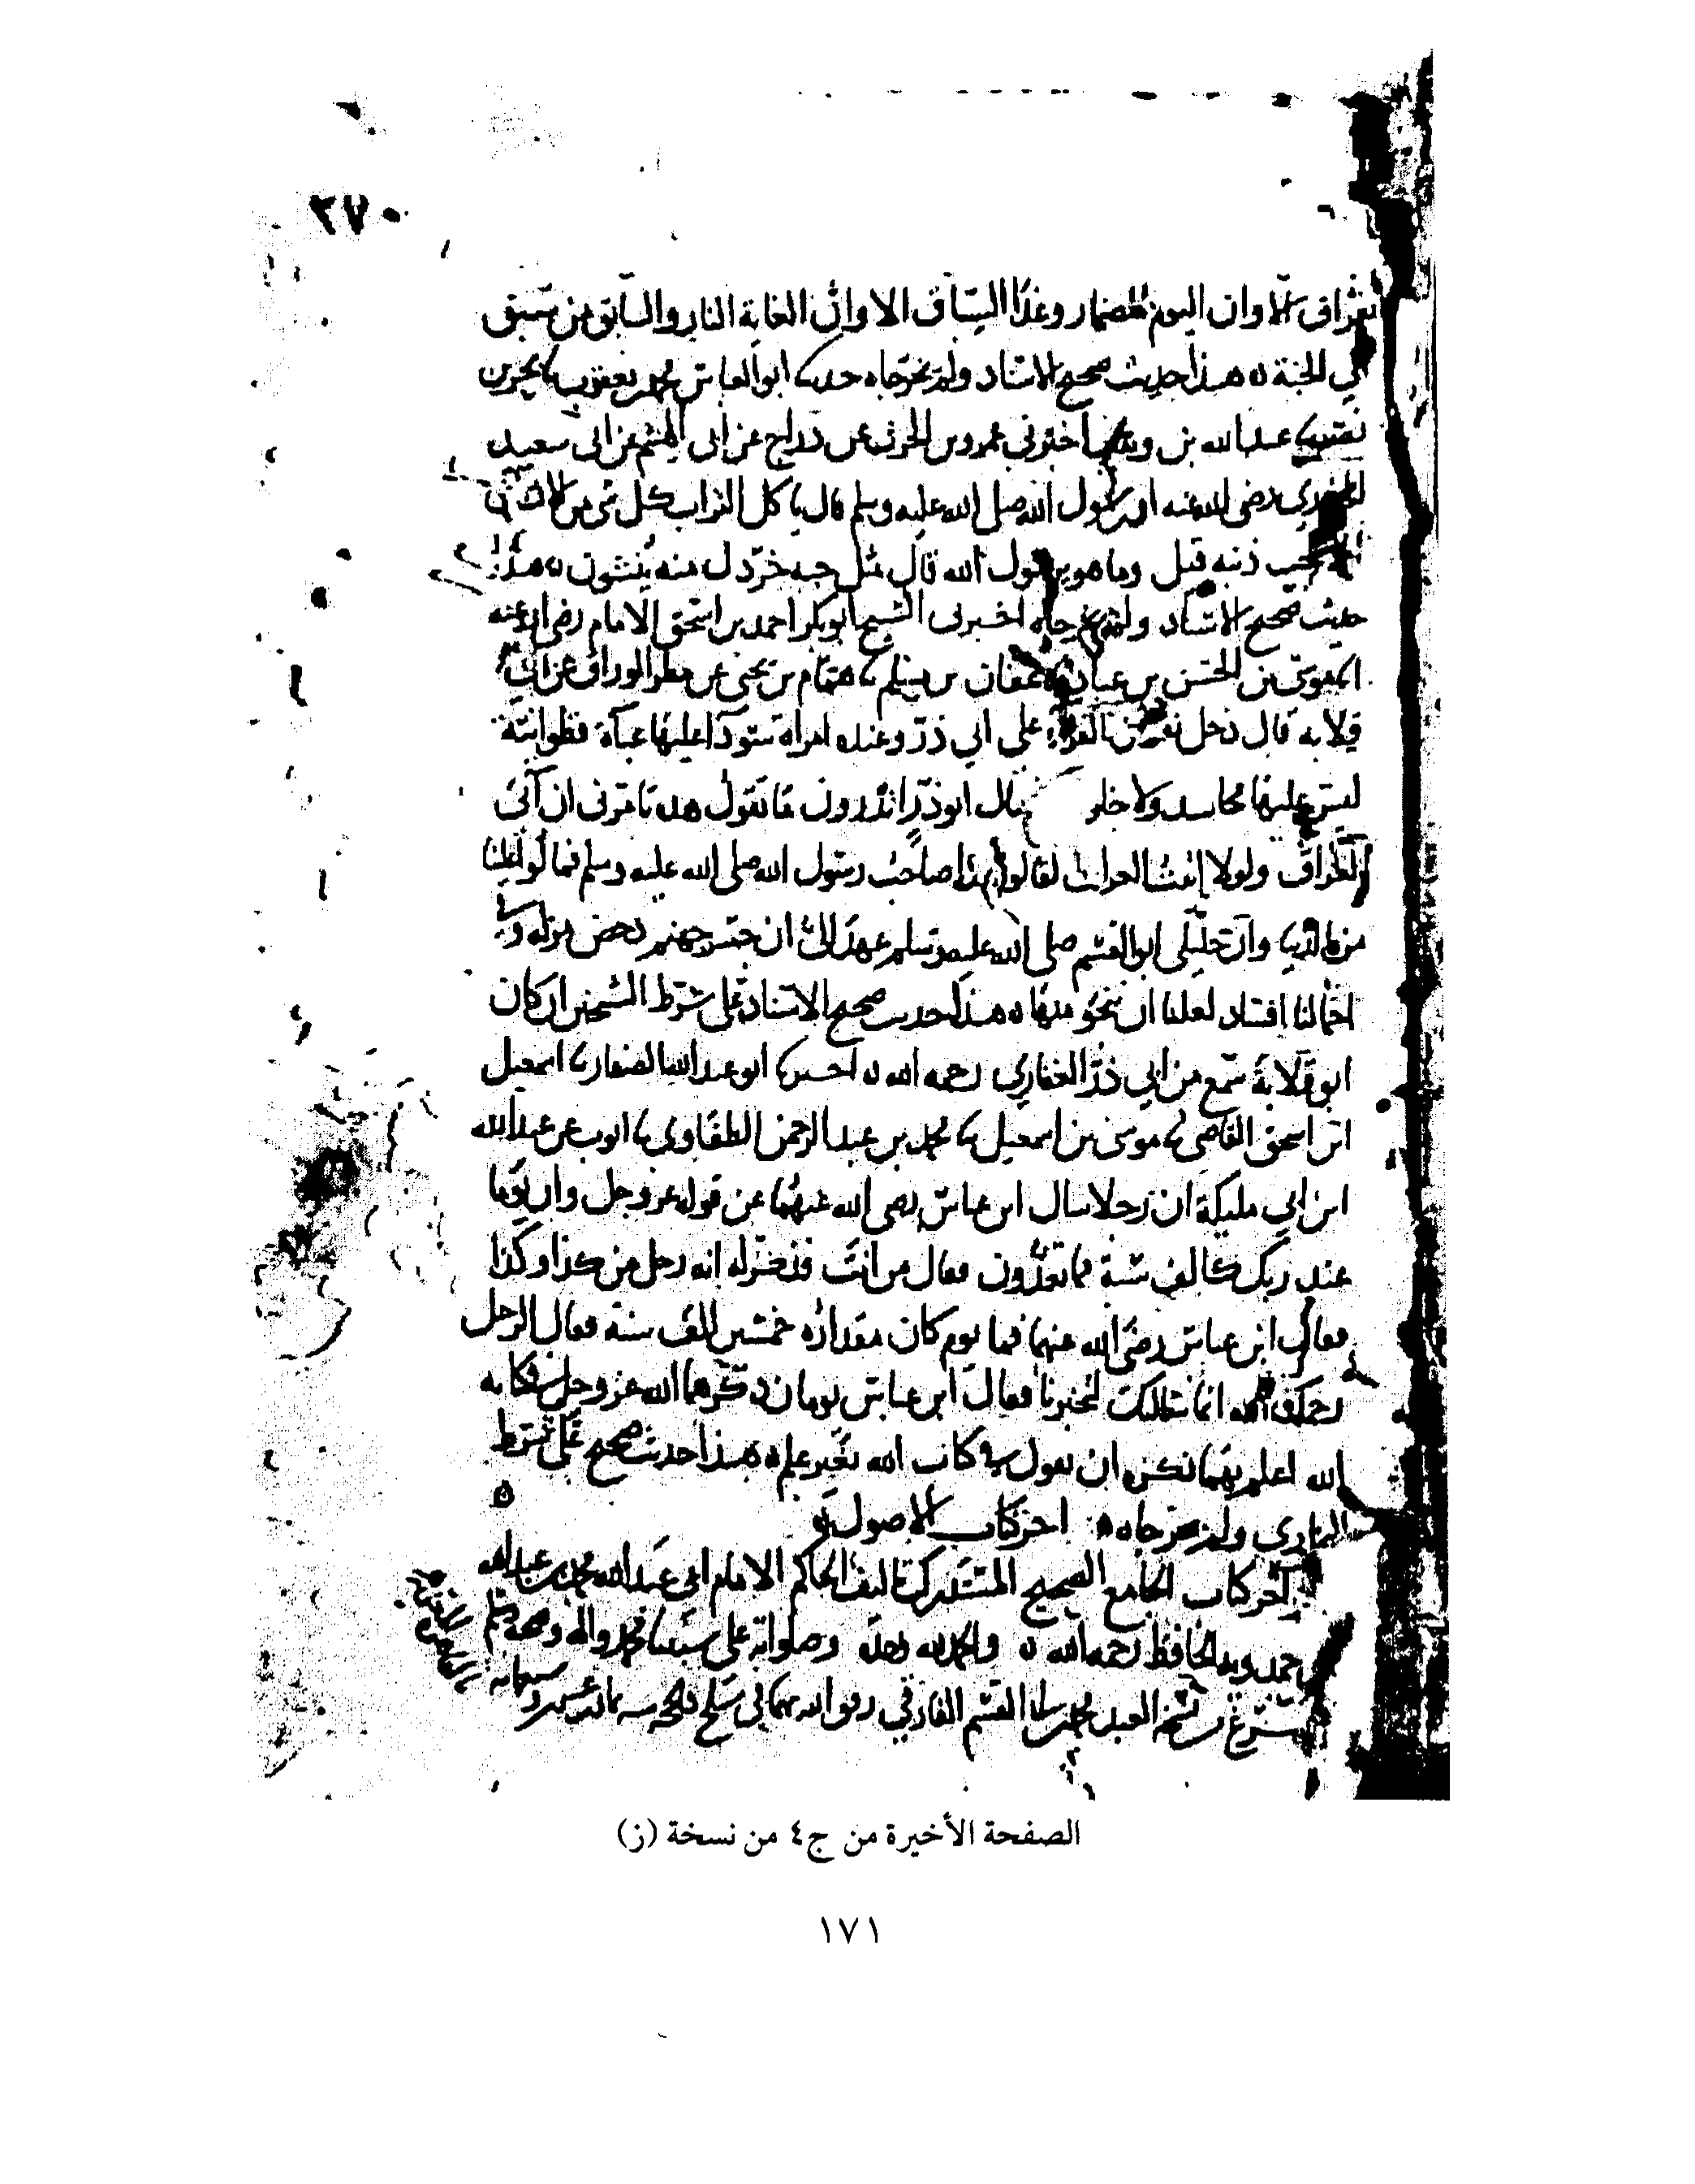 ٢٧٠
بفراق الا وان اليوم المضمار وغدا السباق الا وان الغاية النار والسابق من سبق
الي الجنة هذا حديث صحيح الاسناد ولم يخرجاه حدثنا ابو العباس محمد بن يعقوب ثنا بحر بن
نصر ثنا عبد الله بن وهب اخبرني عمرو بن الحرث عن دراج عن ابي الهيثم عن ابي سعيد
الخدري رضي الله عنه ان رسول الله صلى الله عليه وسلم قال ياكل التراب كل شي من الانسان
الا عجب ذنبه قيل وما هو يرسول الله قال مثل حبة خردل منه ينشون هذا
حديث صحيح الاسناد ولم يخرجاه اخبرني الشيخ ابو بكر احمد بن اسحق الامام رضي الله عنه
موسى بن الحسن بن عباد ثنا عفان بن مسلم ثنا همام بن يحيى عن مطر الوراق عن ابي
قلابة قال دخل نفر من القراء على ابي ذر وعنده امراة سودا عليها عباة قطوانية
ليس عليها مجاسد ولا خلو فقال ابو ذر اتدرون ما تقول هده تامرني ان آتي
العراق ولو اتيت العراق لقالوا هذا صاحب رسول الله صلى الله عليه وسلم فمالوا علينا
من الدنيا وان خليلي ابو القسم صلى الله عليه وسلم عهد الي ان جسر جهنم دحض مزلة وفي
احمالنا اقتاد لعلنا ان ننجو منها هذا حديث صحيح الاسناد على شرط الشيخين ان كان
ابو قلابة سمع من ابي ذر الغفاري رحمه الله اخبرنا ابو عبد الله الصفار ثنا اسمعيل
ابن اسحق القاضي ثنا موسى بن اسمعيل ثنا محمد بن عبد الرحمن الطفاوي ثنا ايوب عن عبد الله
ابن ابي مليكة ان رجلا سال ابن عباس رضي الله عنهما عن قوله عز وجل وان يوما
عند ربك كالف سنة مما تعدون فقال من انت فذكر له انه رجل من كذا وكذا
فقال ابن عباس رضي الله عنهما فما يوم كان مقداره خمسين الف سنة فقال الرجل
رحمك الله انما سالتك لتخبرنا فقال ابن عباس يومان ذكرهما الله عز وجل في كتابه
الله اعلم بهما نكره ان نقول في كتاب الله بغير علم هذا حديث صحيح على شرط
البخاري ولم يخرجاه اخر كتاب الاصول
آخر كتاب الجامع الصحيح المستدرك تاليف الحاكم الامام ابي عبد الله محمد بن عبد الله
بن حمدويه الحافظ رحمه الله والحمد لله وحده وصلواته على سيدنا محمد واله وصحبه وسلم
العبد محمد القسم الفارقي في سلخ ذي الحجة سنة
الصفحة الأخيرة من ج٤ من نسخة (ز)
١٧١